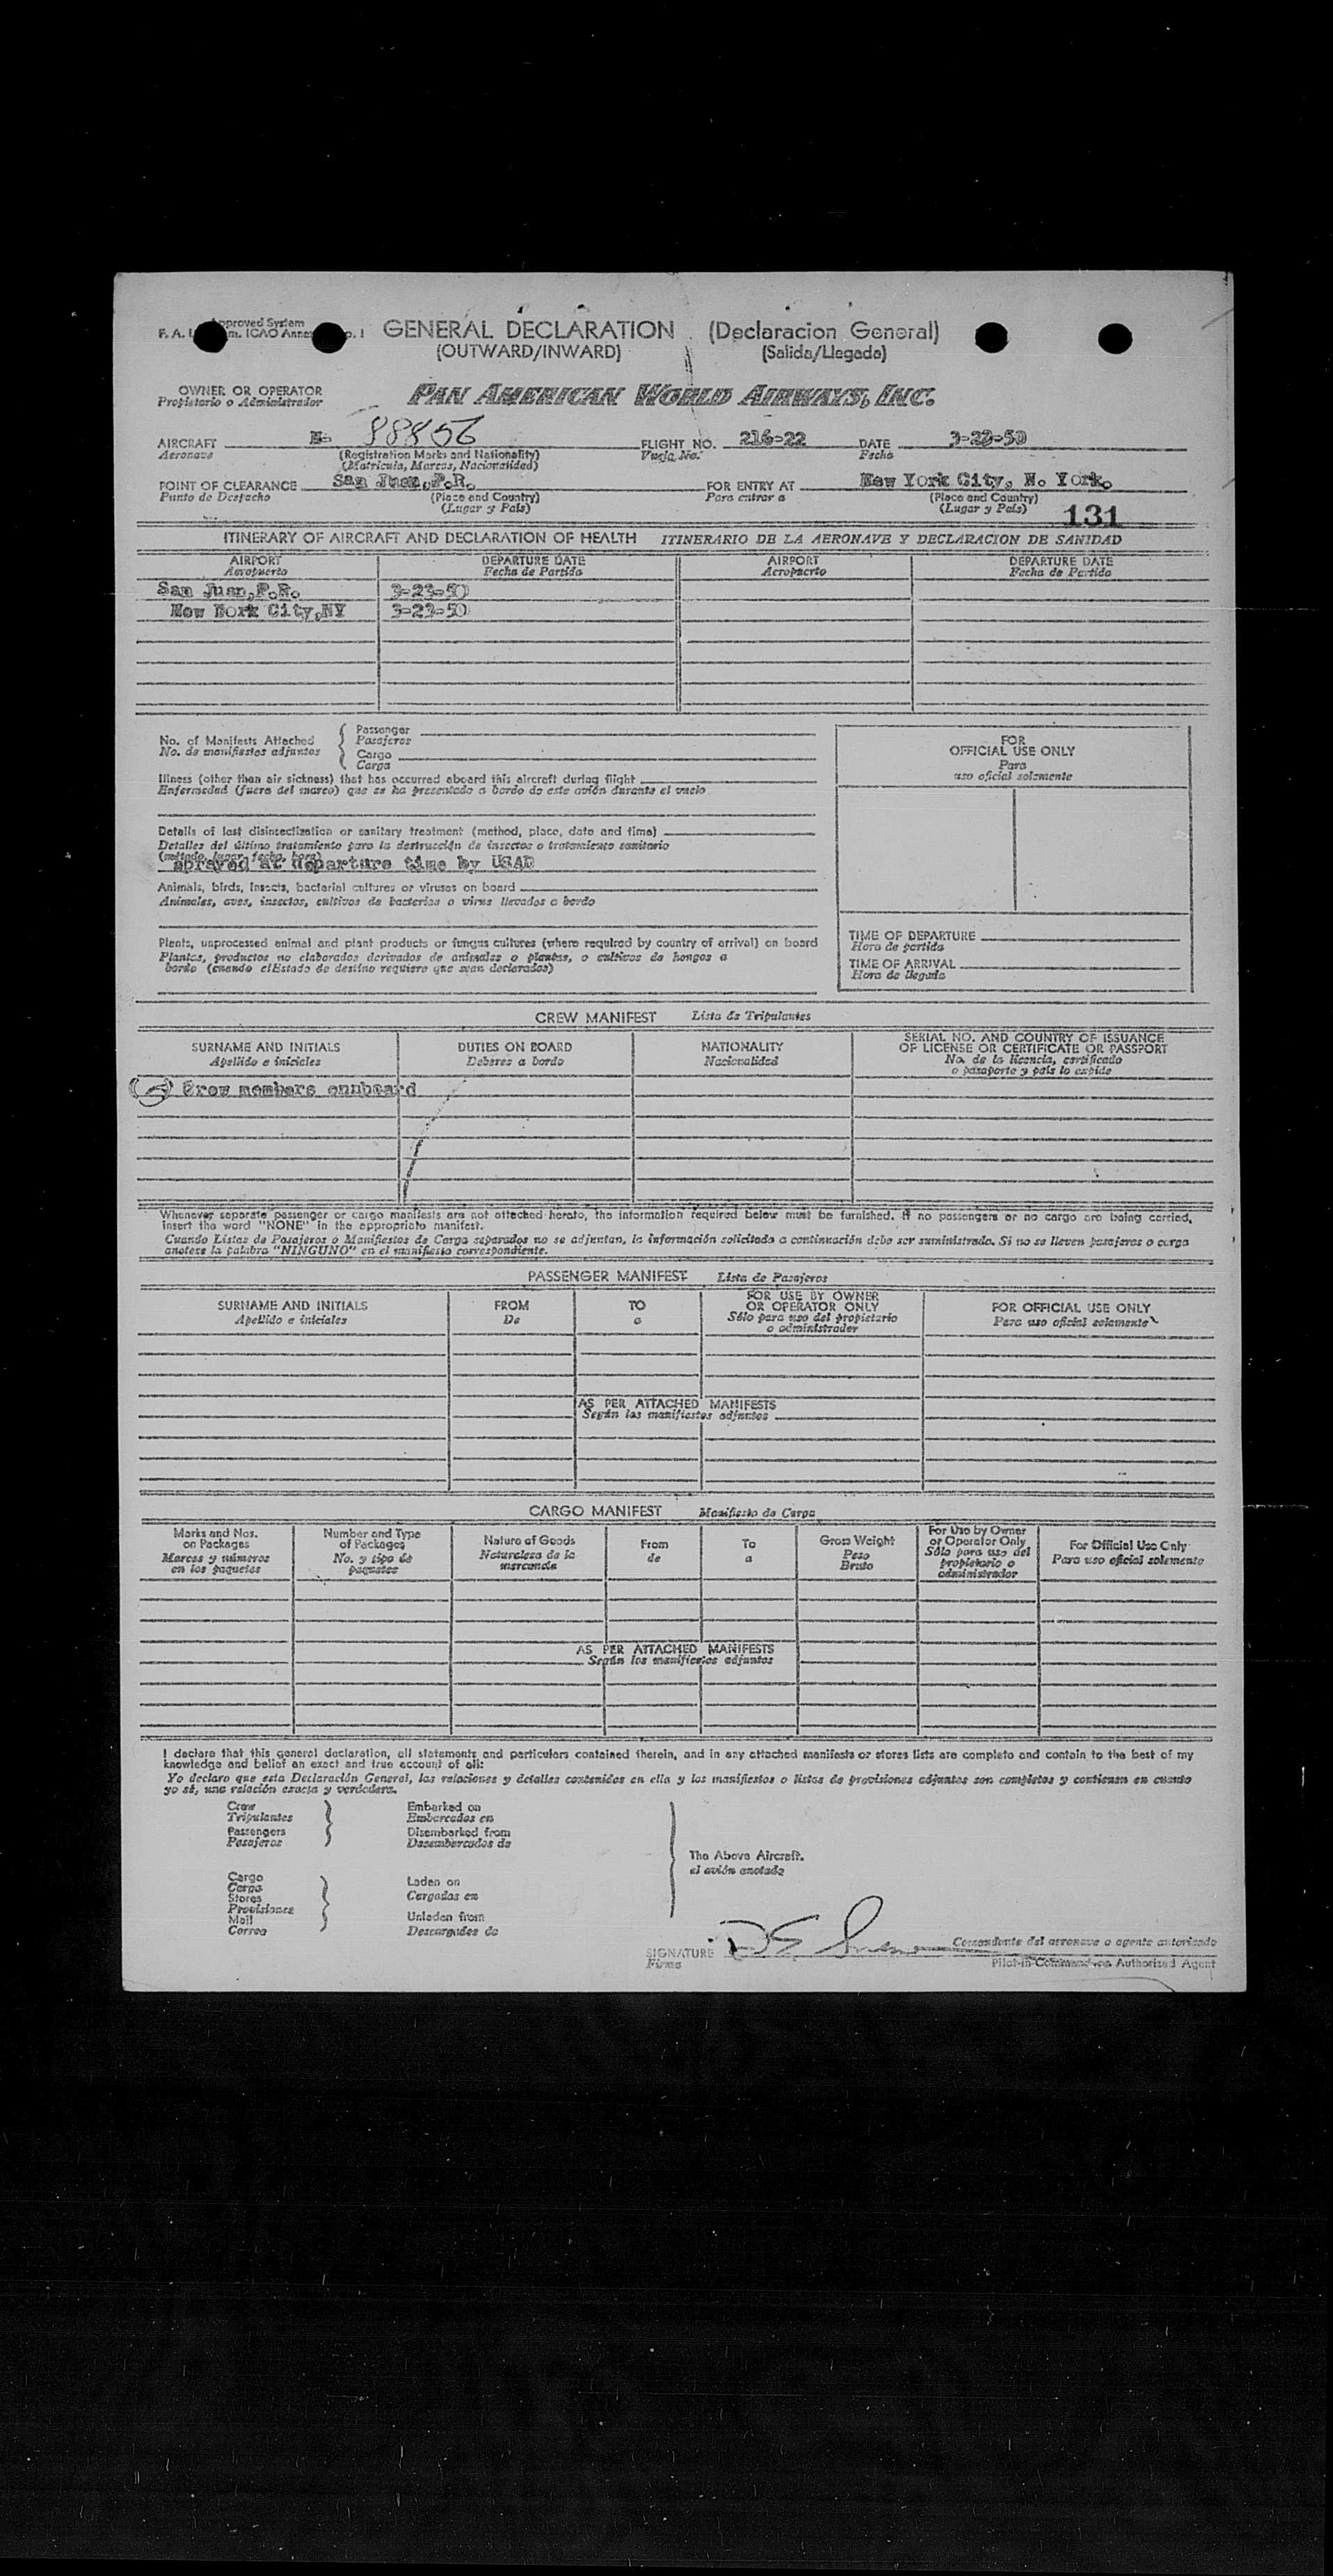 GENERAL DECLARATION (Declaracion General)
(OUTWARD/INWARD) (Salida/Llegada)
OWNER OR OPERATOR PAN AMERICAN WORLD AIRWAYS, INC.
Propietario o Administrador
AIRCRAFT N- 88856 FLIGHT NO. 216-22 DATE 3-23-50
Aeronave (Registration Marks and Nationality) Vuelo No. Fecha
(Matricula, Marcas, Nacionalidad)
POINT OF CLEARANCE San Juan,P.R. FOR ENTRY AT New York City, N. York.
Punto de Despacho (Place and Country) Para entrar a (Place and Country)
(Lugar y País) (Lugar y País) 131
ITINERARY OF AIRCRAFT AND DECLARATION OF HEALTH ITINERARIO DE LA AERONAVE Y DECLARACION DE SANIDAD
AIRPORT DEPARTURE DATE AIRPORT DEPARTURE DATE
Aeropuerto Fecha de Partida Aeropuerto Fecha de Partida
San Juan,P.R. 3-23-50
New York City,NY 3-23-50
No. of Manifests Attached
No. de manifiestos adjuntos
Passenger
Pasajeros
Cargo
Carga
Illness (other than air sickness) that has occurred aboard this aircraft during flight
Enfermedad (fuera del mareo) que se ha presentado a bordo de este avión durante el vuelo
Details of last disinsectization or sanitary treatment (method, place, date and time)
Detalles del último tratamiento para la destrucción de insectos o tratamiento sanitario
(método, lugar, fecha, hora)
sprayed at departure time by USAD
Animals, birds, insects, bacterial cultures or viruses on board
Animales, aves, insectos, cultivos de bacterias o virus llevados a bordo
Plants, unprocessed animal and plant products or fungus cultures (where required by country of arrival) on board
Plantas, productos no elaborados derivados de animales o plantas, o cultivos de hongos a
bordo (cuando el Estado de destino requiere que sean declarados)
FOR
OFFICIAL USE ONLY
Para
uso oficial solamente
TIME OF DEPARTURE
Hora de partida
TIME OF ARRIVAL
Hora de llegada
CREW MANIFEST Lista de Tripulantes
SURNAME AND INITIALS DUTIES ON BOARD NATIONALITY SERIAL NO. AND COUNTRY OF ISSUANCE
OF LICENSE OR CERTIFICATE OR PASSPORT
Apellido e iniciales Deberes a bordo Nacionalidad No. de la licencia, certificado
o pasaporte y país lo expide
Crew members onnboard
Whenever separate passenger or cargo manifests are not attached hereto, the information required below must be furnished. If no passengers or no cargo are being carried,
insert the word "NONE" in the appropriate manifest.
Cuando Listas de Pasajeros o Manifiestos de Carga separados no se adjuntan, la información solicitada a continuación debe ser suministrada. Si no se lleven pasajeros o carga
anotese la palabra "NINGUNO" en el manifiesto correspondiente.
PASSENGER MANIFEST Lista de Pasajeros
SURNAME AND INITIALS FROM TO FOR USE BY OWNER
OR OPERATOR ONLY FOR OFFICIAL USE ONLY
Apellido e iniciales De a Sólo para uso del propietario
o administrador Para uso oficial solamente
AS PER ATTACHED MANIFESTS
Según las manifiestos adjuntos
CARGO MANIFEST Manifiesto de Carga
Marks and Nos.
on Packages
Marcas y números
en los paquetes
Number and Type
of Packages
No. y tipo de
paquetes
Nature of Goods
Naturaleza de la
mercancía
From
de
To
a
Gross Weight
Peso
Bruto
For Use by Owner
or Operator Only
Sólo para uso del
propietario o
administrador
For Official Use Only
Para uso oficial solamente
AS PER ATTACHED MANIFESTS
Según los manifiestos adjuntos
I declare that this general declaration, all statements and particulars contained therein, and in any attached manifests or stores lists are complete and contain to the best of my
knowledge and belief an exact and true account of all:
Yo declaro que esta Declaración General, las relaciones y detalles contenidos en ella y los manifiestos o listas de provisiones adjuntos son completos y contienen en cuanto
yo sé, una relación exacta y verdadera.
Crew
Tripulantes
Passengers
Pasajeros
Embarked on
Embarcados en
Disembarked from
Desembarcados de
The Above Aircraft.
el avión anotado
Cargo
Carga
Stores
Provisiones
Mail
Correo
Laden on
Cargados en
Unladen from
Descargados de
SIGNATURE
Firma
Comandante del aeronave o agente autorizado
Pilot-in-Command or Authorized Agent